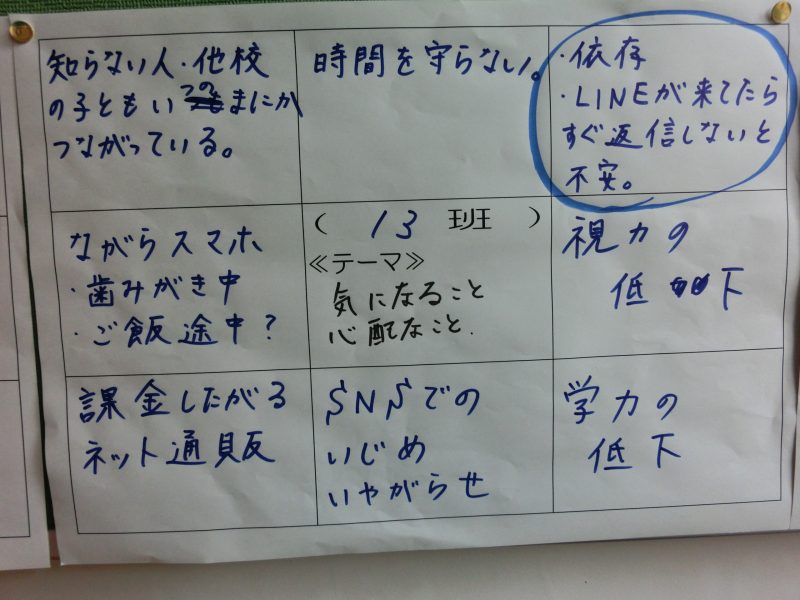 知らない人・他校
の子どもいつのまにか
つながっている。
時間を守らない。
・依存
・LINEが来てたら
すぐ返信しないと
不安。
ながらスマホ
・歯みがき中
・ご飯途中?
( 13 班 )
≪テーマ≫
気になること
心配なこと.
視力の
低下
課金したがる
ネット通販
SNSでの
いじめ
いやがらせ
学力の
低下